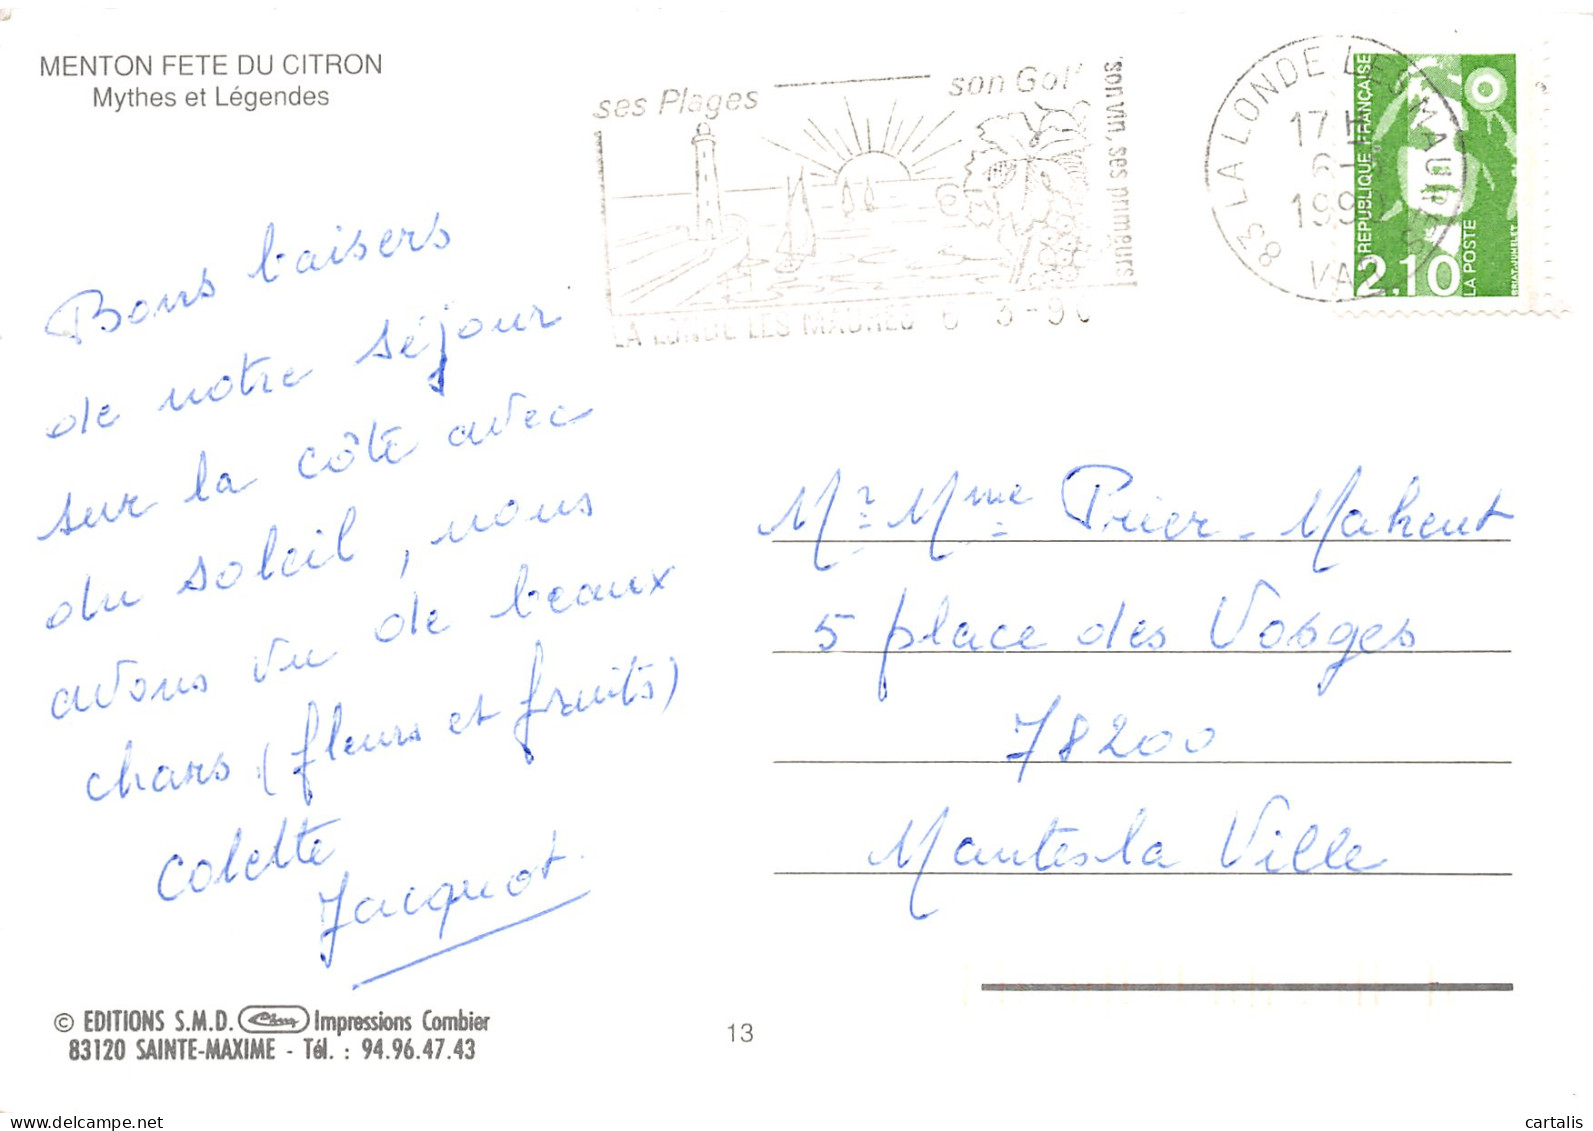 MENTON FETE DU CITRON
Mythes et Légendes
ses Plages
son Golf
son vin, ses primeurs
LA LONDE LES MAURES 6 3-90
83 LA LONDE LES MAURES
17 H
6-3
1990
VAR
REPUBLIQUE FRANÇAISE
LA POSTE
2,10
BRIAT-JUMELET
Bons baisers
de notre séjour
sur la côte avec
du soleil, nous
avons vu de beaux
chars (fleurs et fruits)
Colette
Jacquot
Mr Mme Prier-Maheut
5 place des Vosges
78200
Mantes la Ville
© EDITIONS S.M.D. Cim Impressions Combier
83120 SAINTE-MAXIME - Tél. : 94.96.47.43
13
www.delcampe.net
cartalis